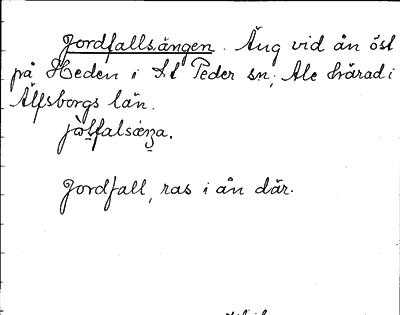 Jordfallsängen. Äng vid ån öst
på Heden i St Peder sn, Ale härad i
Älfsborgs län.
Jordfall, ras i ån där.